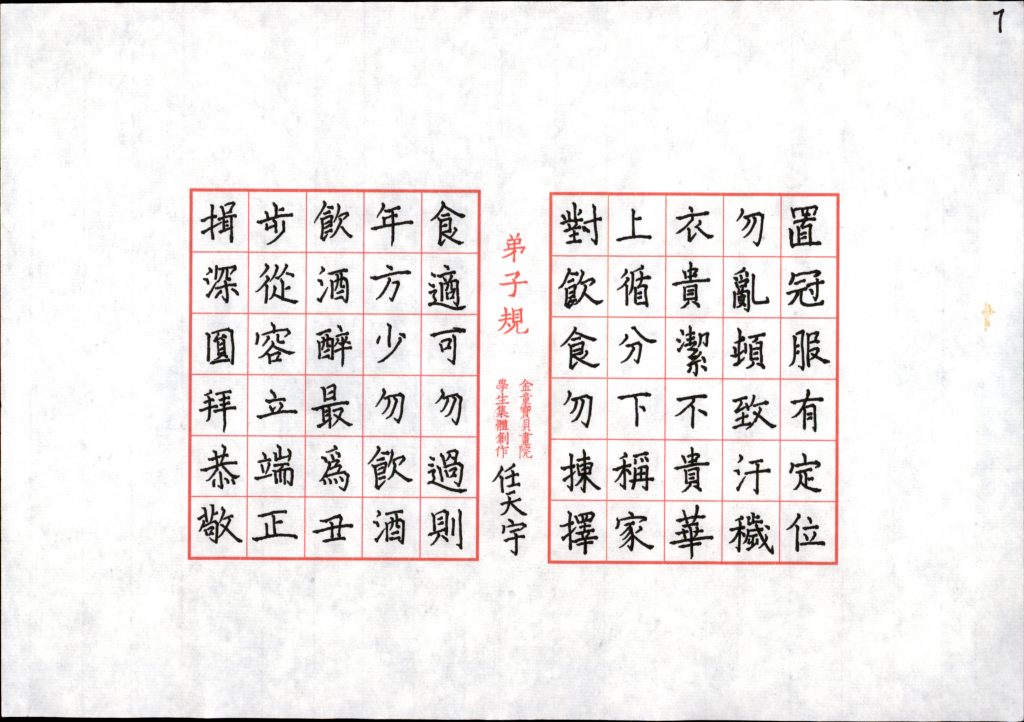 7
置冠服有定位
勿亂頓致汙穢
衣貴潔不貴華
上循分下稱家
對飲食勿揀擇
弟子規
金童寶貝畫院
學生集體創作
任天宇
食適可勿過則
年方少勿飲酒
飲酒醉最爲丑
步從容立端正
揖深圓拜恭敬